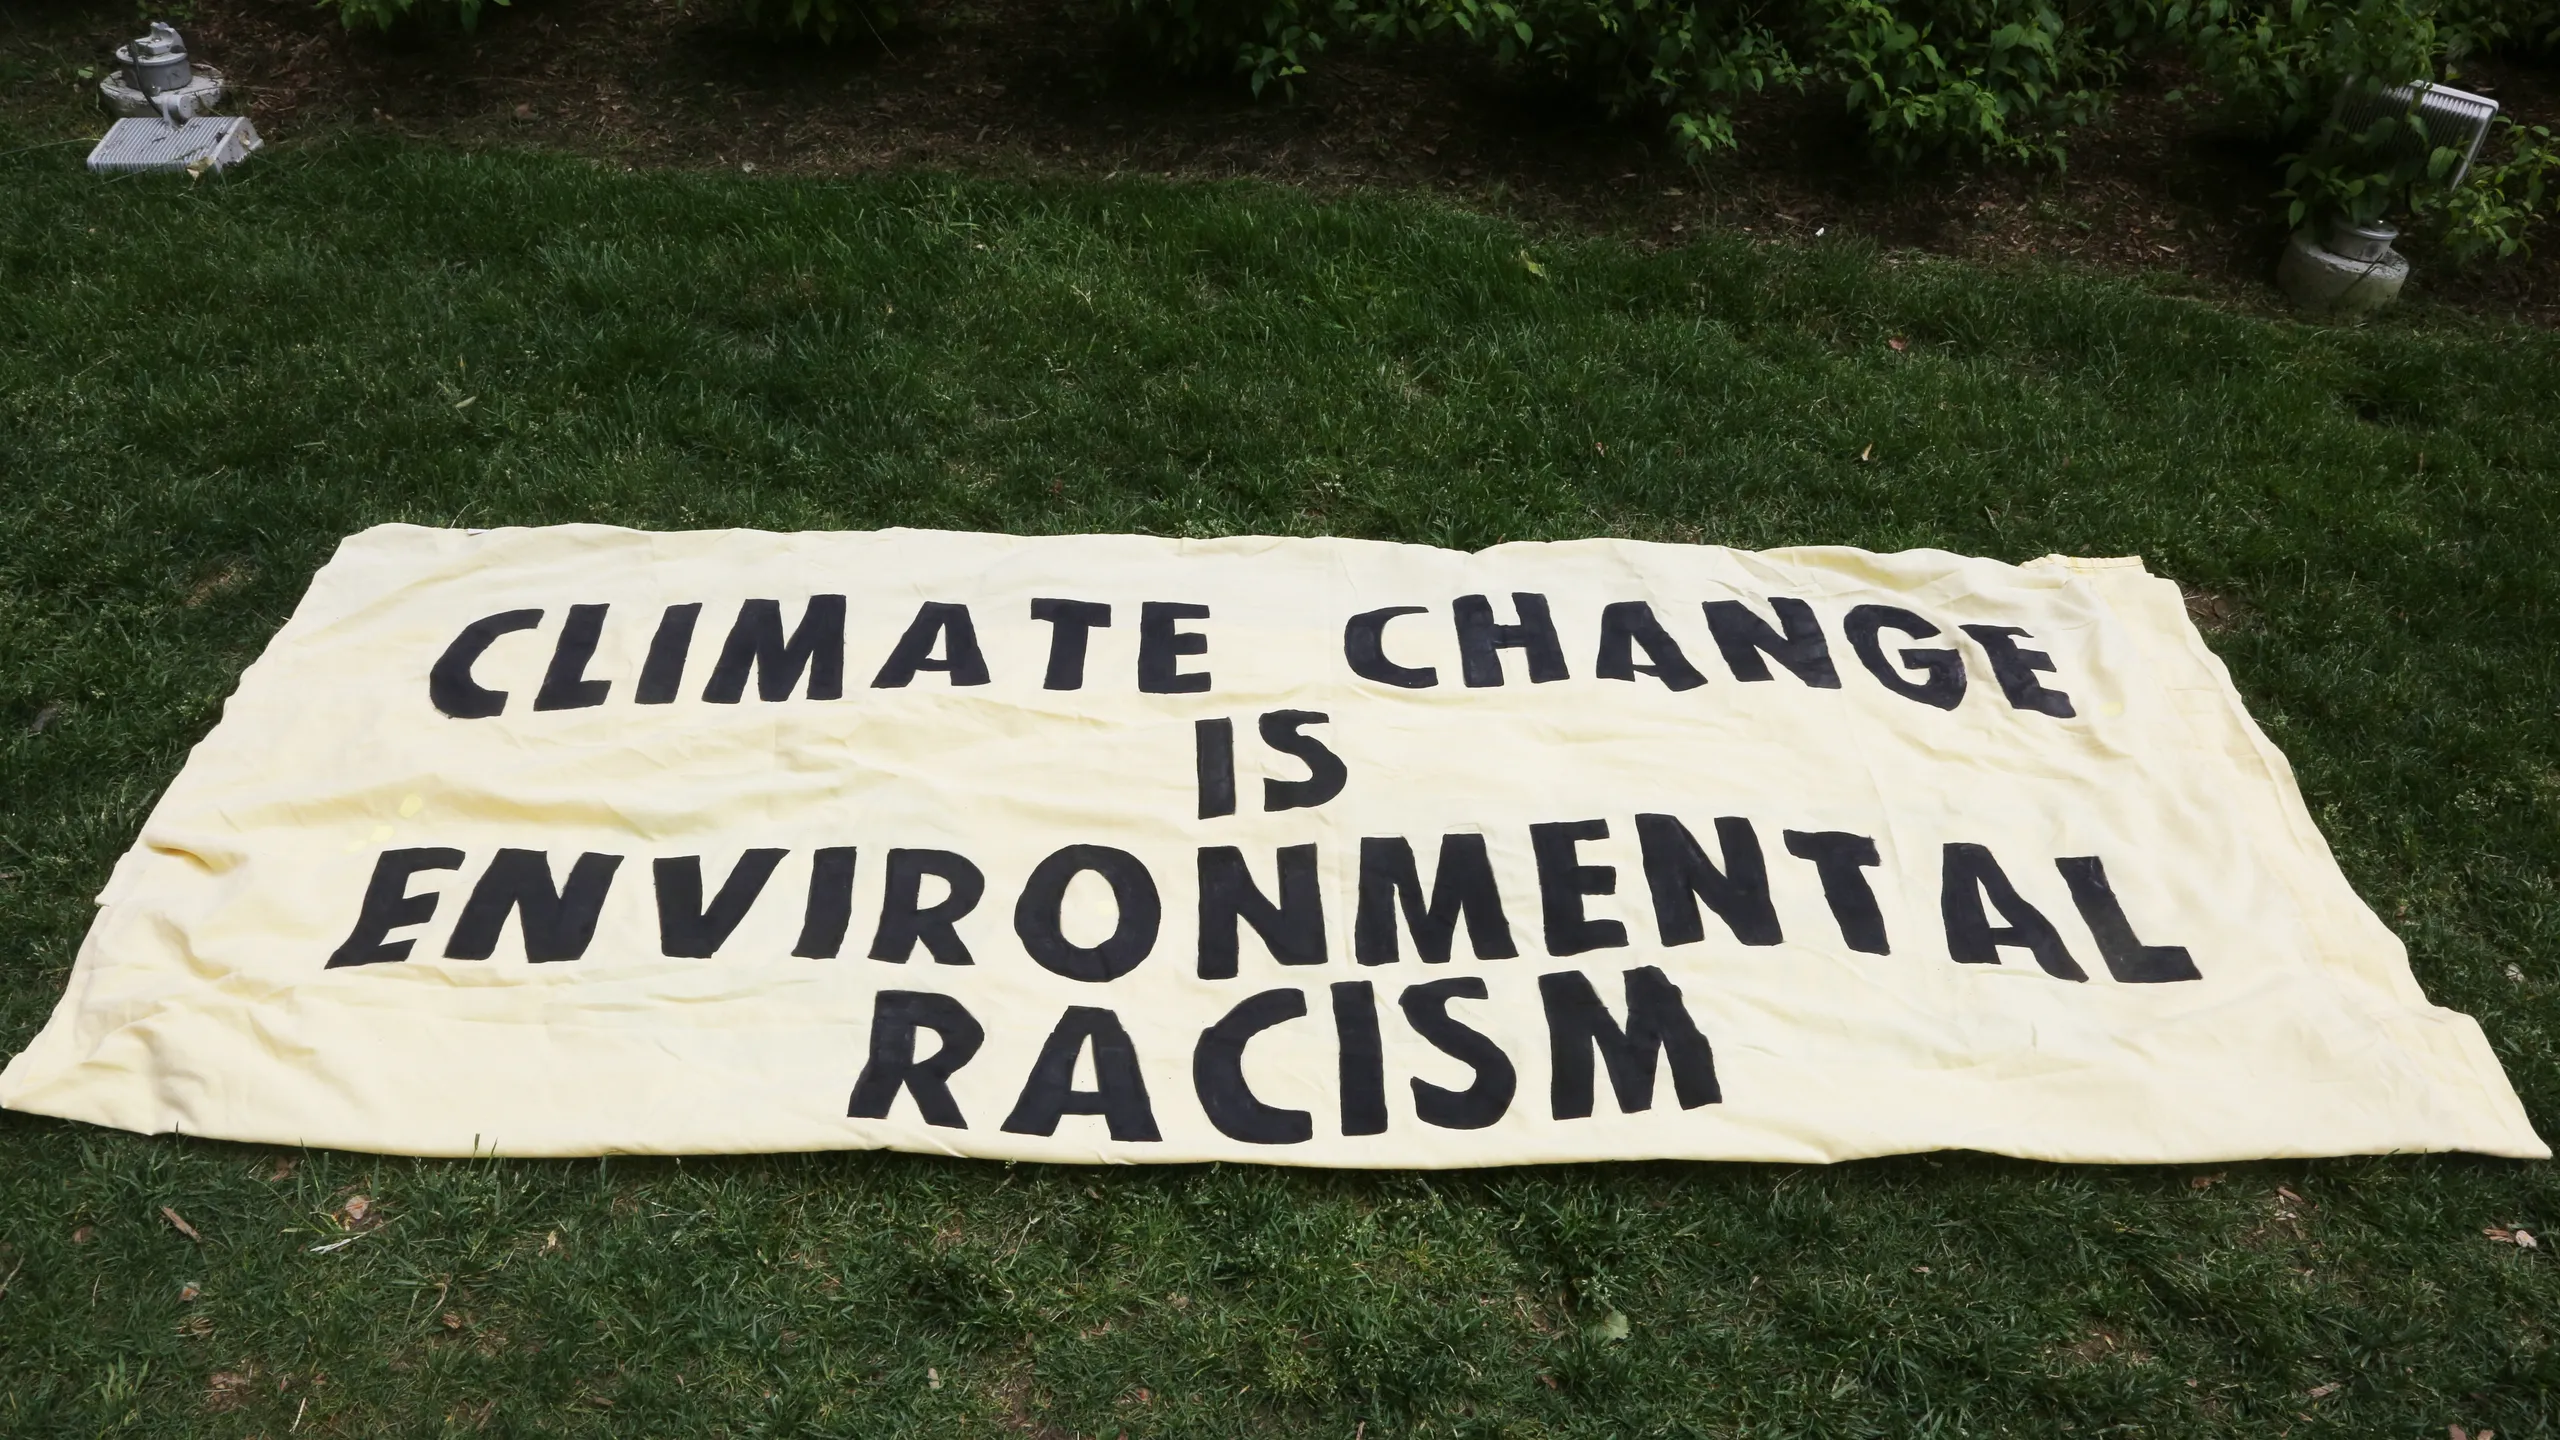 CLIMATE CHANGE
IS
ENVIRONMENTAL
RACISM